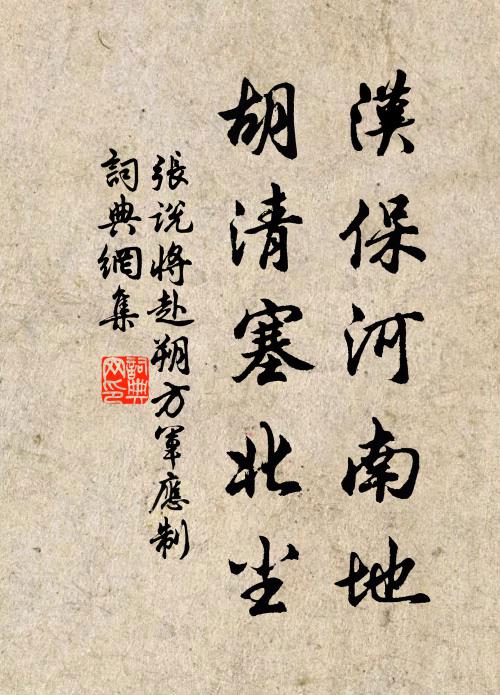 漢保河南地
胡清塞北尘
張說將赴朔方軍應制
詞典網集
詞典
网印